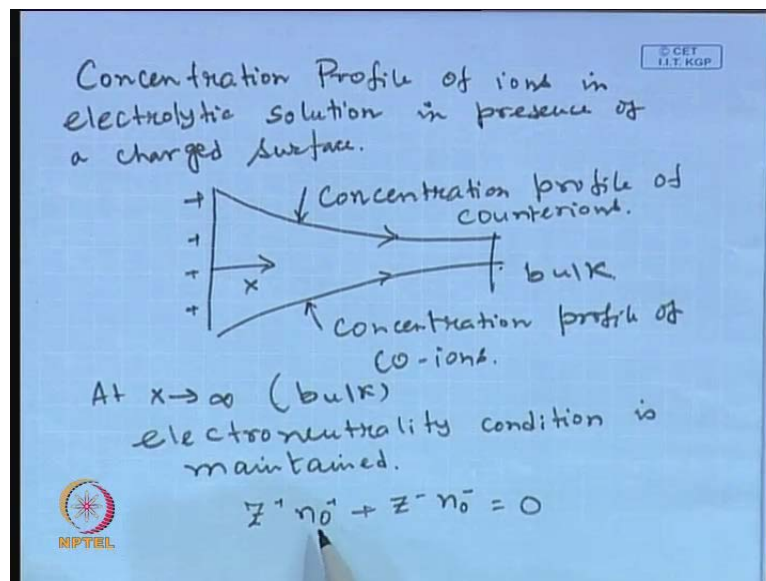 © CET
I.I.T. KGP
Concentration Profile of ions in
electrolytic solution in presence of
a charged surface.
+
Concentration profile of
counterions.
+
+
x
bulk
+
Concentration profile of
co-ions.
At x→∞ (bulk)
electroneutrality condition is
maintained.
z⁺ n₀⁺ + z⁻ n₀⁻ = 0
NPTEL